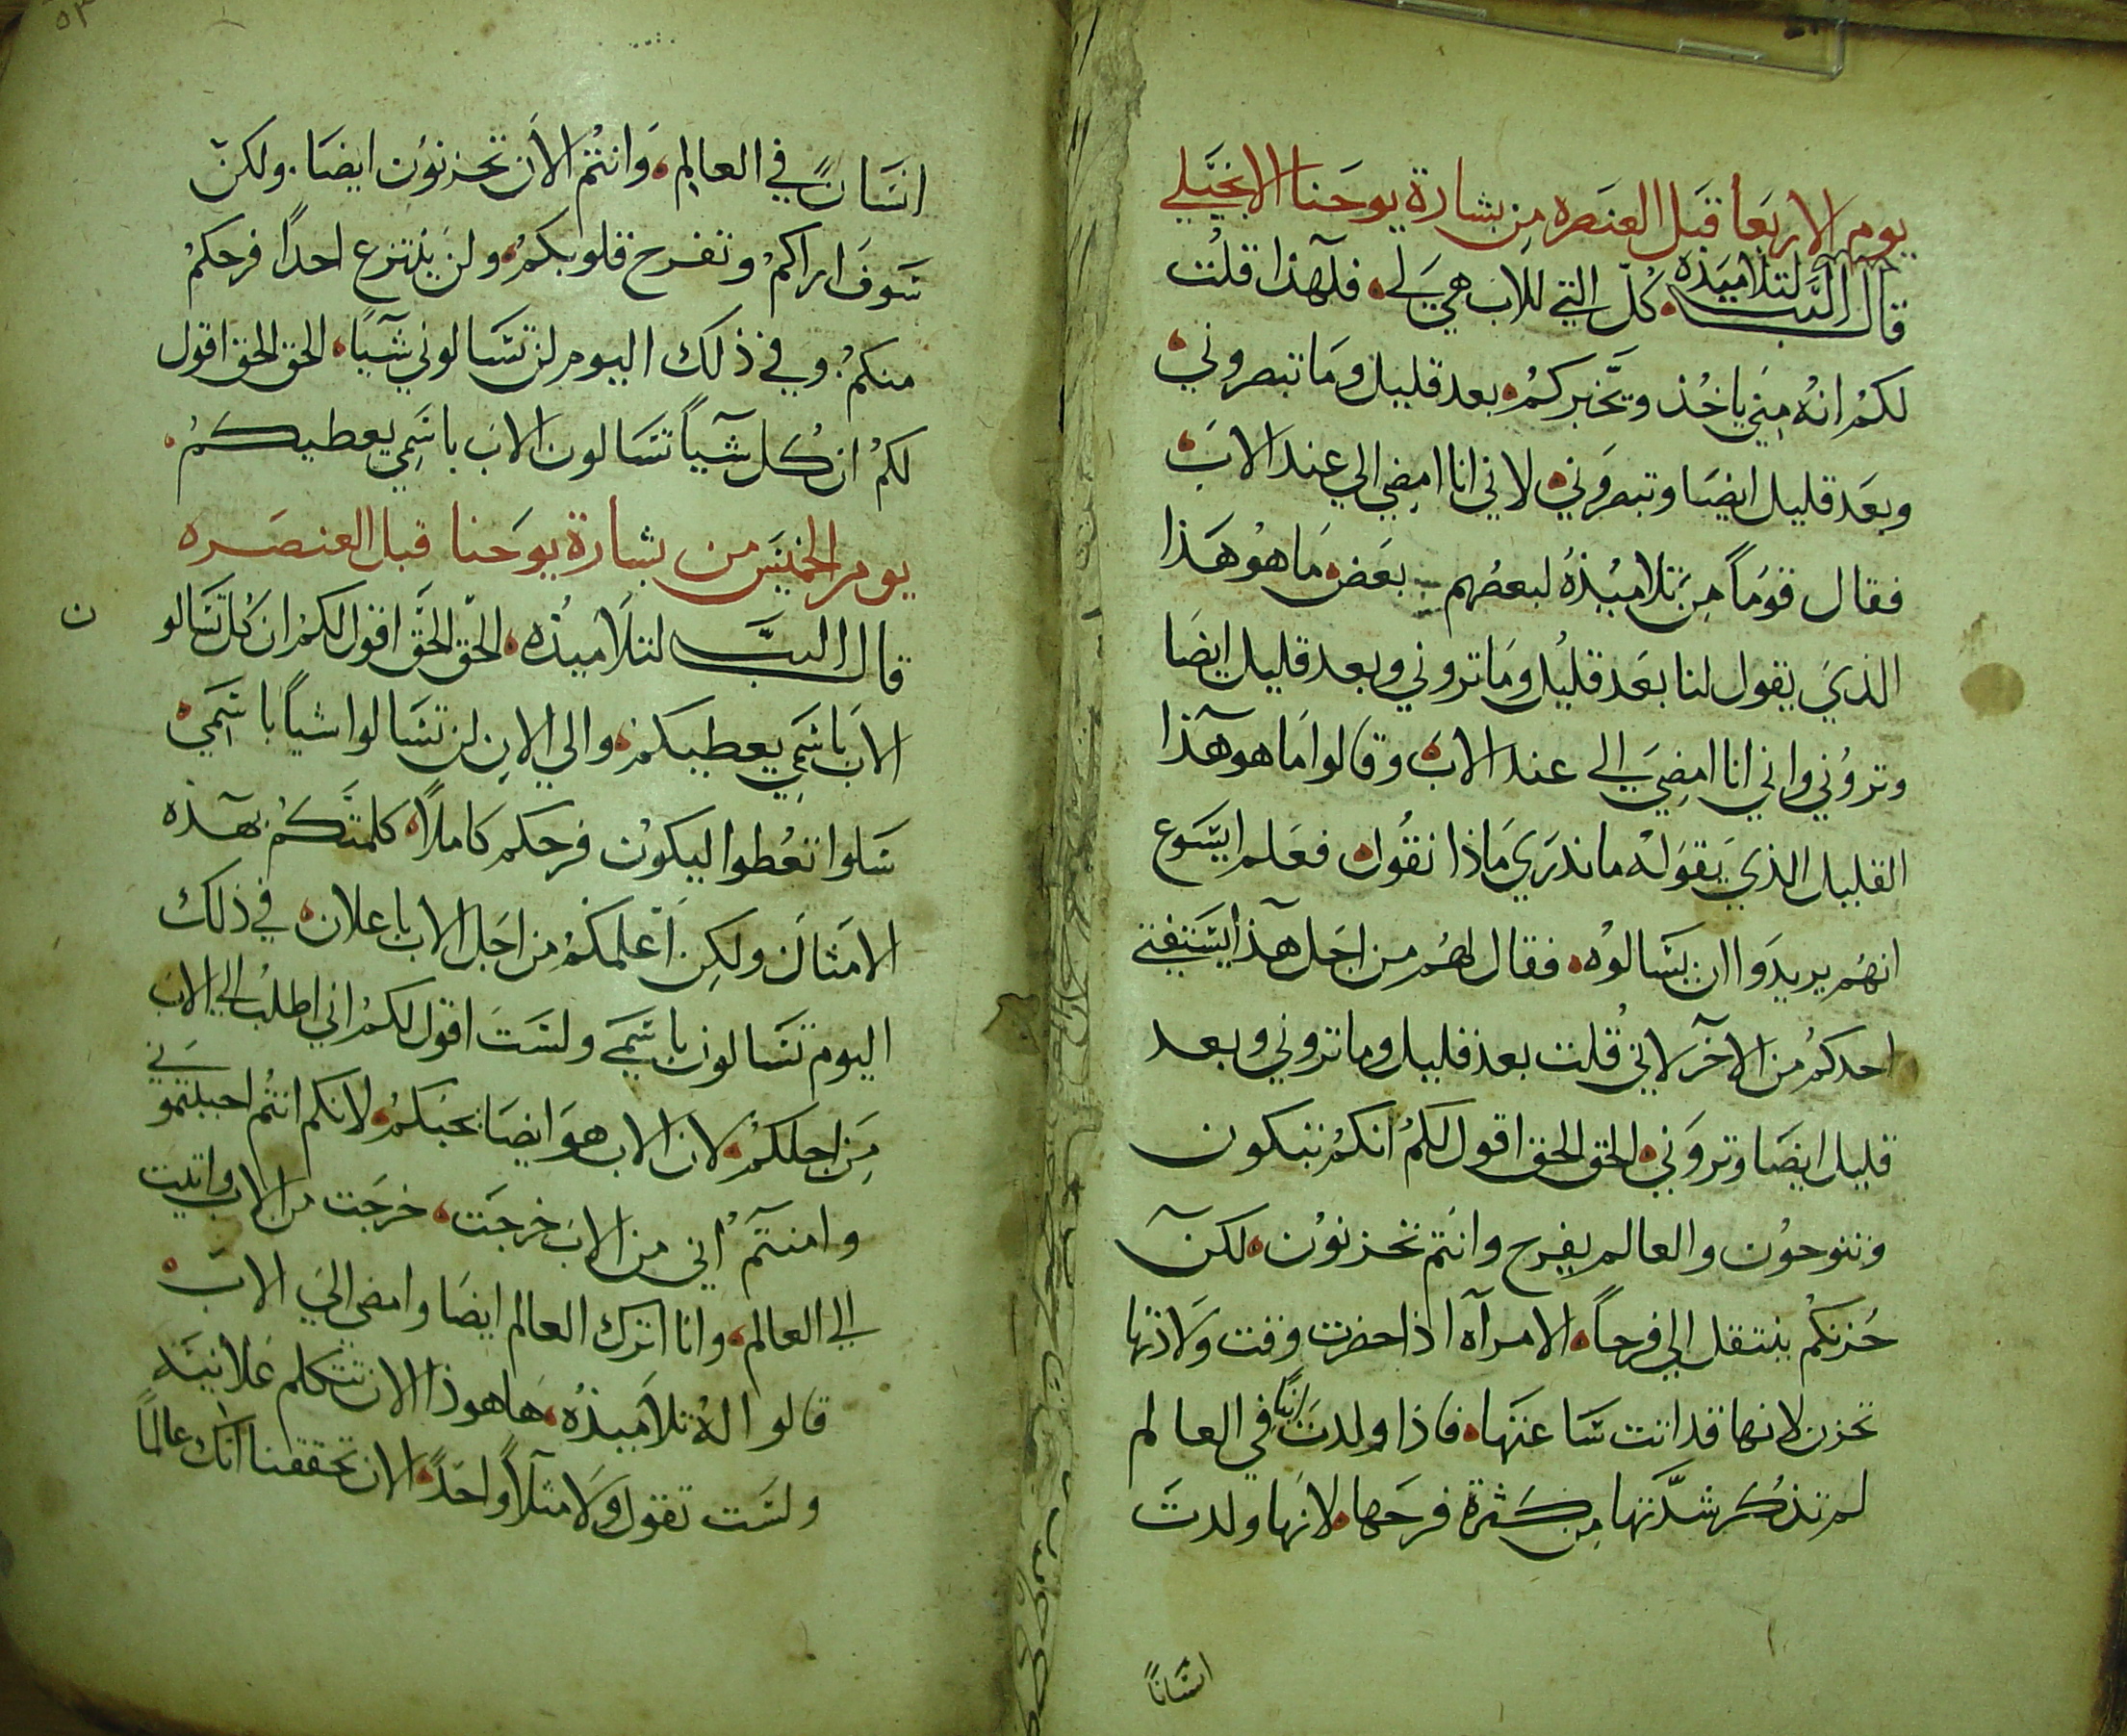 يوم الاربعا قبل العنصره من بشارة يوحنا الانجيلي
قال الرب لتلاميذه كل التي للاب هي لي فلهذا قلت
لكم انه مني ياخذ ويخبركم بعد قليل وما تبصروني
وبعد قليل ايضا وتبصروني لاني انا امضي الي عند الاب
فقال قوماً من تلاميذه لبعضهم بعض ما هو هذا
الذي يقول لنا بعد قليل وما تروني وبعد قليل ايضا
وتروني واني انا امضي الي عند الاب وقالوا ما هو هذا
القليل الذي يقوله ما ندري ماذا نقول فعلم ايسوع
انهم يريدوا ان يسالوه فقال لهم من اجل هذا يستفتي
احدكم من الاخر لاني قلت بعد قليل وما تروني وبعد
قليل ايضا وتروني الحق الحق اقول لكم انكم تبكون
وتنوحون والعالم يفرح وانتم تحزنون لكن
حزنكم ينتقل الي فرحاً الامراه اذا حضرت وقت ولادتها
تحزن لانها قد اتت ساعتها فاذا ولدت انساناً في العالم
لم تذكر شدتها من كثرة فرحها لانها ولدت
انساناً
٥٣
انساناً في العالم وانتم الان تحزنون ايضا ولكن
سوف اراكم وتفرح قلوبكم ولن ينتزع احداً فرحكم
منكم وفي ذلك اليوم لن تسالوني شياً الحق الحق اقول
لكم ان كل شياً تسالون الاب باسمي يعطيكم
يوم الخميس من بشارة يوحنا قبل العنصره
قال الرب لتلاميذه الحق الحق اقول لكم ان كل تسالو
ن
الاب باسمي يعطيكم والي الان لن تسالوا شياً باسمي
سلوا تعطوا ليكون فرحكم كاملاً كلمتكم بهذه
الامثال ولكن اعلمكم من اجل الاب باعلان في ذلك
اليوم تسالون باسمي ولست اقول لكم اني اطلب الي الاب
من اجلكم لان الاب هو ايضا يحبكم لانكم انتم احببتمو
ني
وامنتم اني من الاب خرجت خرجت من الاب واتيت
الي العالم وانا اترك العالم ايضا وامضي الي الاب
قالوا له تلاميذه ها هوذا الان تتكلم علانيه
ولست تقول ولا مثلاً واحداً الان تحققنا انك عالماً